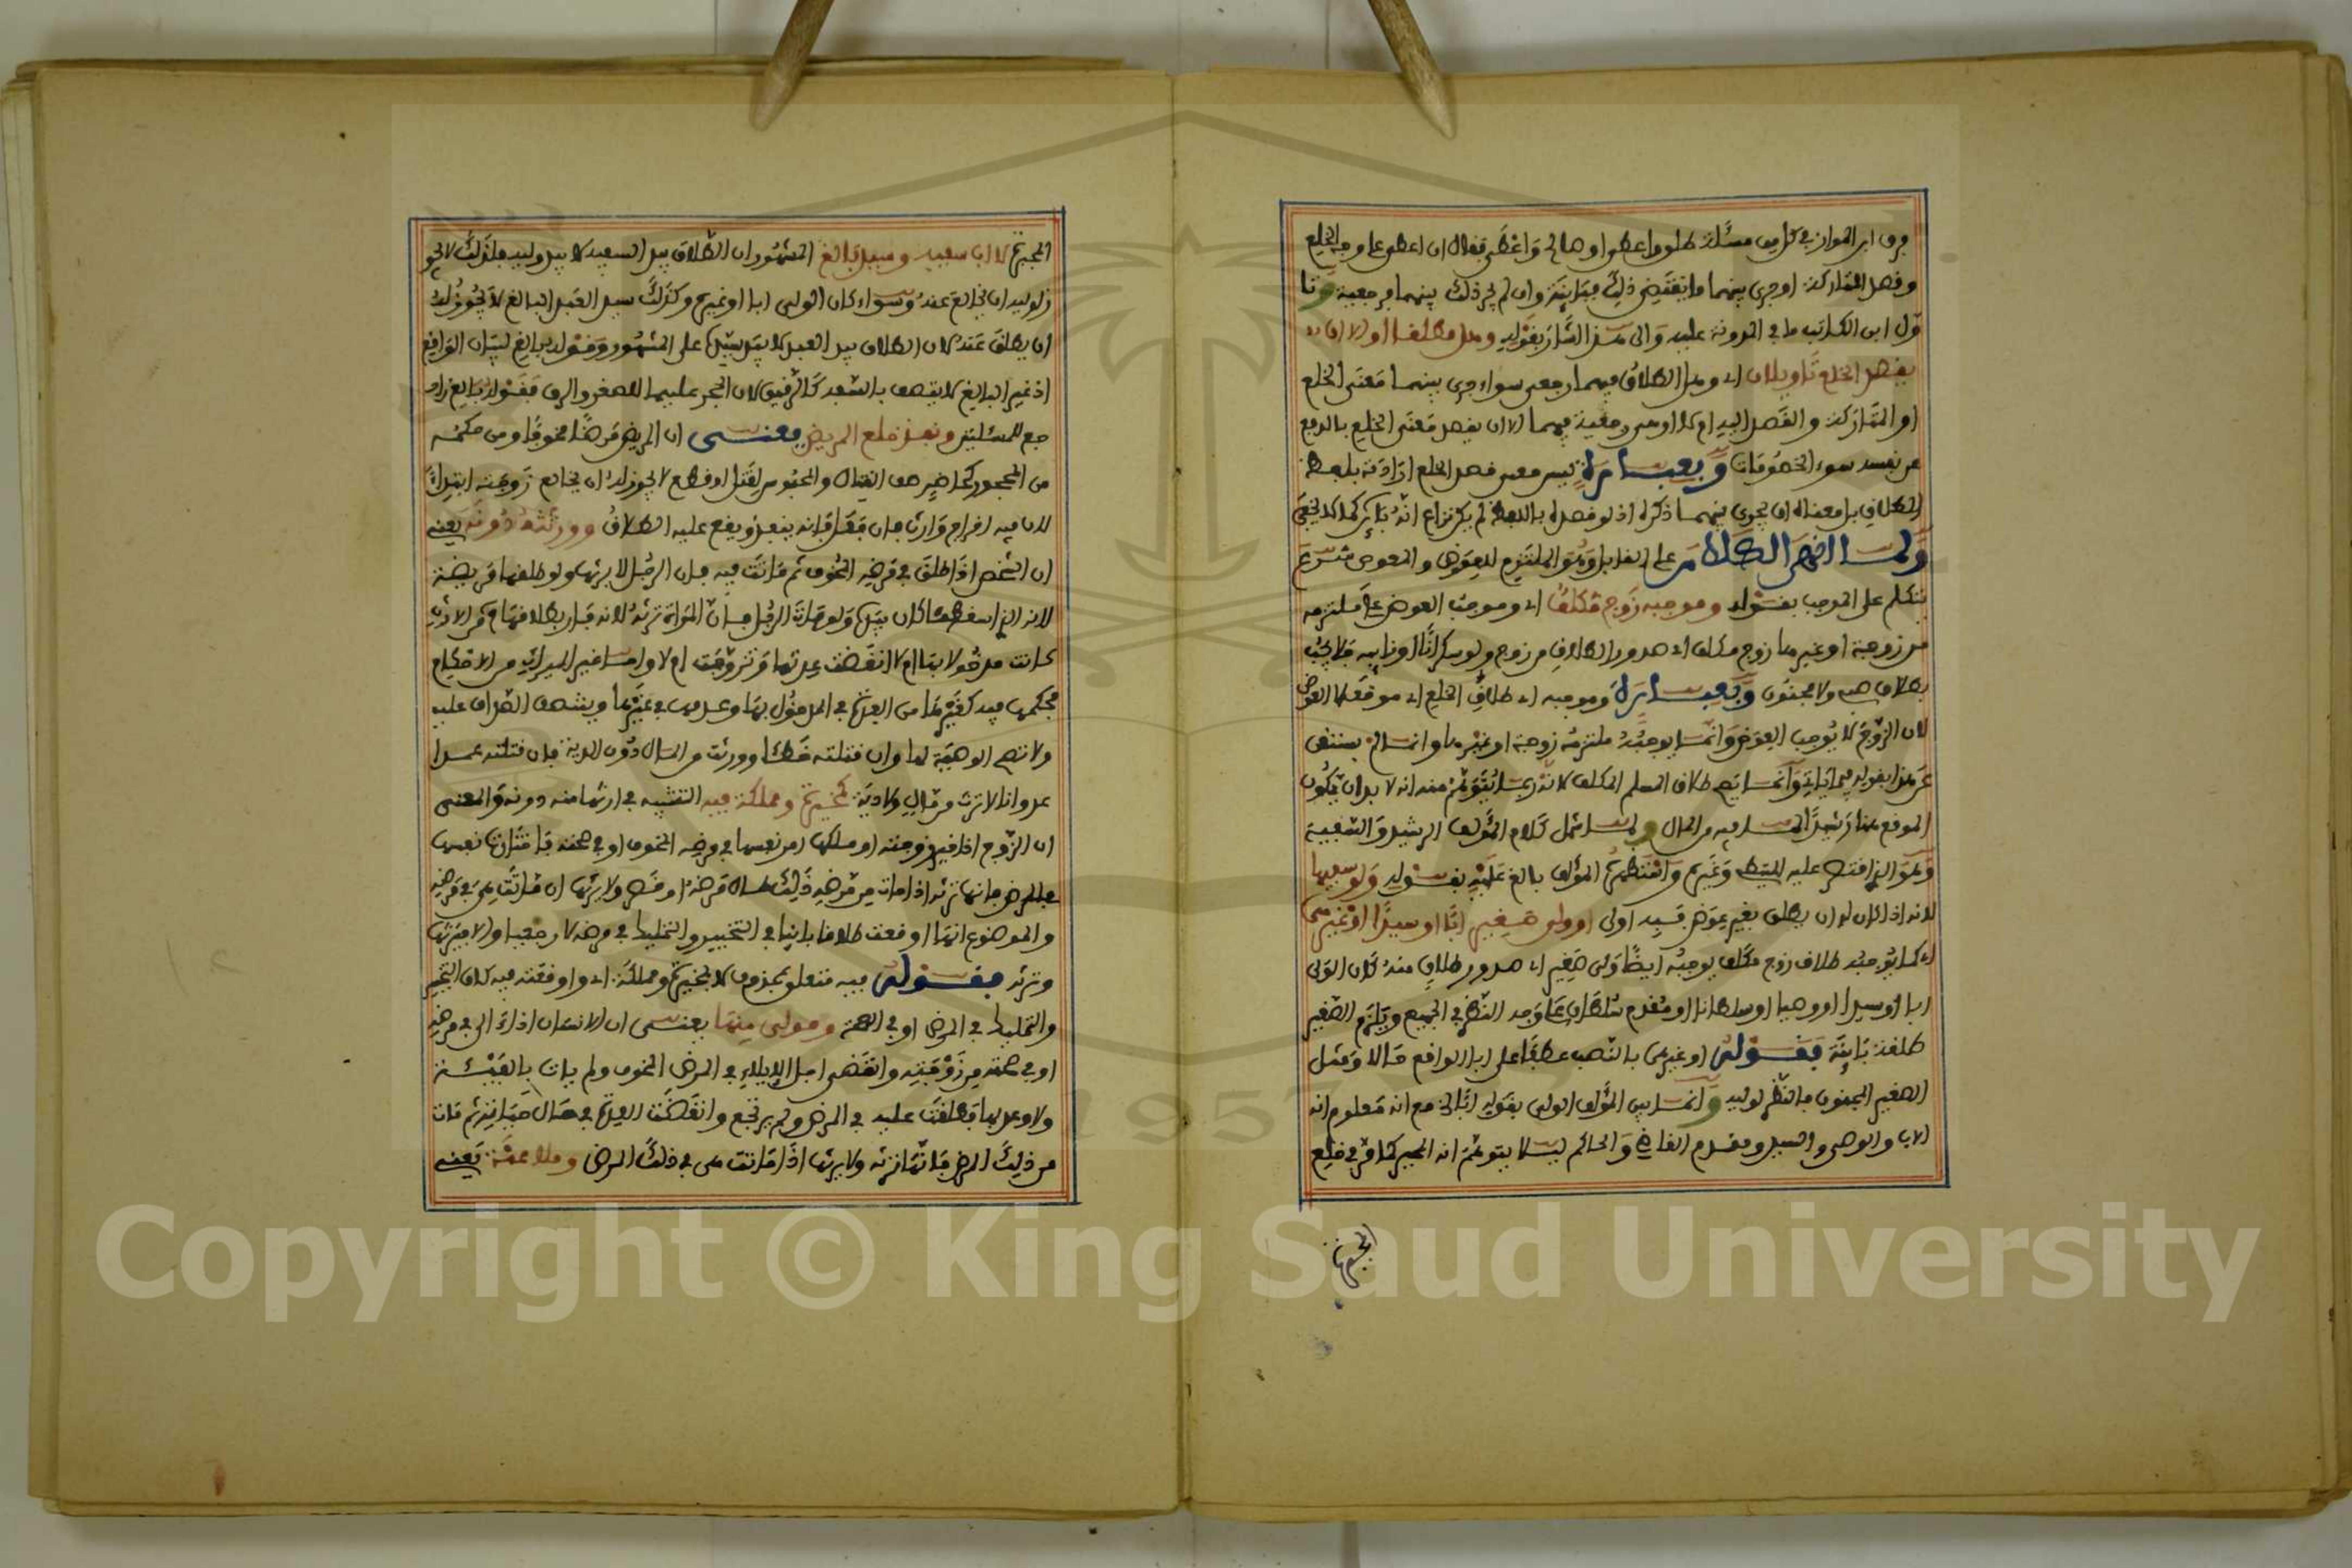 فرق ابن المواز في كل من مسئلة طلق واعطى او صالح واعطى فقال ان اعطى على وجه الخلع
وقصد المتاركة او جرى بينهما ما يقتضي ذلك فباينة وان لم يجر ذلك بينهما فرجعية وتا
ول ابن الكاتب ما في المدونة عليه والى هذا اشار بقوله وهل مطلقا او الا ان
يقصد الخلع تاويلان اي وهل الطلاق فيهما رجعي سواء جرى بينهما معنى الخلع
او المتاركة والقصد اليه ام لا او هي رجعية فيهما الا ان يقصد معنى الخلع بالدفع
عن نفسه سوء الخصومات وبعبارة ليس معنى قصد الخلع ارادته بلفظ
الطلاق بل معناه ان يجري بينهما ذكره اذ لو قصده باللفظ لم يكن نزاع انه باين كما لا يخفى
ولما انهى الكلام على القابل وهو الملتزم للعوض والمعوض شرع
يتكلم على الموجب بقوله وموجبه زوج مكلف اي وموجب العوض على ملتزمه
من زوجة او غيرها زوج مكلف اي صدور الطلاق من زوج ولو سكرانا او نايبه فلا يجب
بطلاق صبي ولا مجنون وبعبارة وموجبه اي طلاق الخلع اي موقعه لا العوض
لان الزوج لا يوجب العوض وانما يوجبه ملتزمه زوجة او غيرها وانما لم يستغن
عن هذا بقوله فيما ياتي وانما يصح طلاق المسلم المكلف لانه ربما يتوهم منه انه لا بد ان يكون
الموقع هنا رشيدا لما فيه من المال ولما شمل كلام المؤلف الرشيد والسفيه
وهو الذي اقتصر عليه المتيطي وغيره واستظهره المؤلف بالغ عليه بقوله ولو سفيها
لانه اذا كان له ان يطلق بغير عوض فبه اولى او ولي صغير ابا او سيدا او غيرهما
اي كما يوجبه طلاق زوج مكلف يوجبه ايضا ولي صغير اي صدور طلاق منه كان الولي
ابا او سيدا او وصيا او سلطانا او مقدم سلطان على وجه النظر في الجميع ويلزم الصغير
طلقة باينة فقوله او غيرهما بالنصب عطفا على ابا الواقع حالا ومثل
الصغير المجنون فالنظر لوليه وانما بين المؤلف الولي بقوله ابا الخ مع انه معلوم انه
الاب والوصي والسيد ومقدم القاضي والحاكم ليلا يتوهم انه المجبر كما مر في خلع
المجبرة
المجبرة لا اب سفيه وسيد بالغ المشهور ان الطلاق بيد السفيه لا بيد وليه فلذلك لا يجو
ز لوليه ان يخالع عنه وسواء كان الولي ابا او غيره وكذلك سيد العبد البالغ لا يجوز له
ان يطلق عنه لان الطلاق بيد العبد لا بيد سيده على المشهور وقوله بالغ لبيان الواقع
اذ غير البالغ لا يتصف بالسفه كالرقيق لان الحجر عليهما للصغر والرق فقوله بالغ راد
جع للمسئلتين ونفذ خلع المريض يعني ان المريض مرضا مخوفا ومن حكمه
من المحجور كحاضر صف القتال والمحبوس لقتل او قطع لا يجوز له ان يخالع زوجته ابتداء
لان فيه اخراج وارث فان فعل فانه ينفذ ويقع عليه الطلاق وورثته دونه يعني
ان الشخص اذا طلق في مرضه المخوف ثم ماتت فيه فان الرجل لا يرثها ولو طلقها مريضة
لانه الذي اسقط ما كان بيده ولو مات الرجل فان المراة ترثه لانه فار بطلاقها من الارث
كانت مدخولا بها ام لا انقضت عدتها وتزوجت ام لا واما غير الميراث من الاحكام
فحكمها فيه كغيرها من العدة في المدخول بها وعدمها في غيرها وينتصف الصداق عليه
ولا تصح الوصية لها وان قتلته خطئا وورثت من المال دون الدية فان قتلته عمدا
عدوانا لا ترث من مال ولا دية كمخيرة ومملكة فيه التشبيه في ارثها منه دونه والمعنى
ان الزوج اذا خير زوجته او ملكها امر نفسها في مرضه المخوف او في صحته فاختارت نفسها
في المرض فانها ترثه اذا مات من مرضه ذلك طال مرضه او قصر ولا يرثها ان ماتت هي في مرضه
والموضوع انها اوقعت طلاقا باينا في التخيير والتمليك في مرضه لا رجعيا والا فيرثها
وترثه فقوله فيه متعلق بمحذوف لا بمخيرة ومملكة اي واوقعته فيه كان التخيير
والتمليك في المرض او في الصحة ومولى منها يعني ان الانسان اذا الى في مرضه
او في صحته من زوجته وانقضى اجل الايلاء في المرض المخوف ولم يات بالفيئة
ولا وعد بها فطلقت عليه في المرض ولم يرتجع وانقضت العدة في حال حياته ثم مات
من ذلك المرض فانها ترثه ولا يرثها اذا ماتت هي في ذلك المرض وملاعنة يعني
Copyright © King Saud University
1957